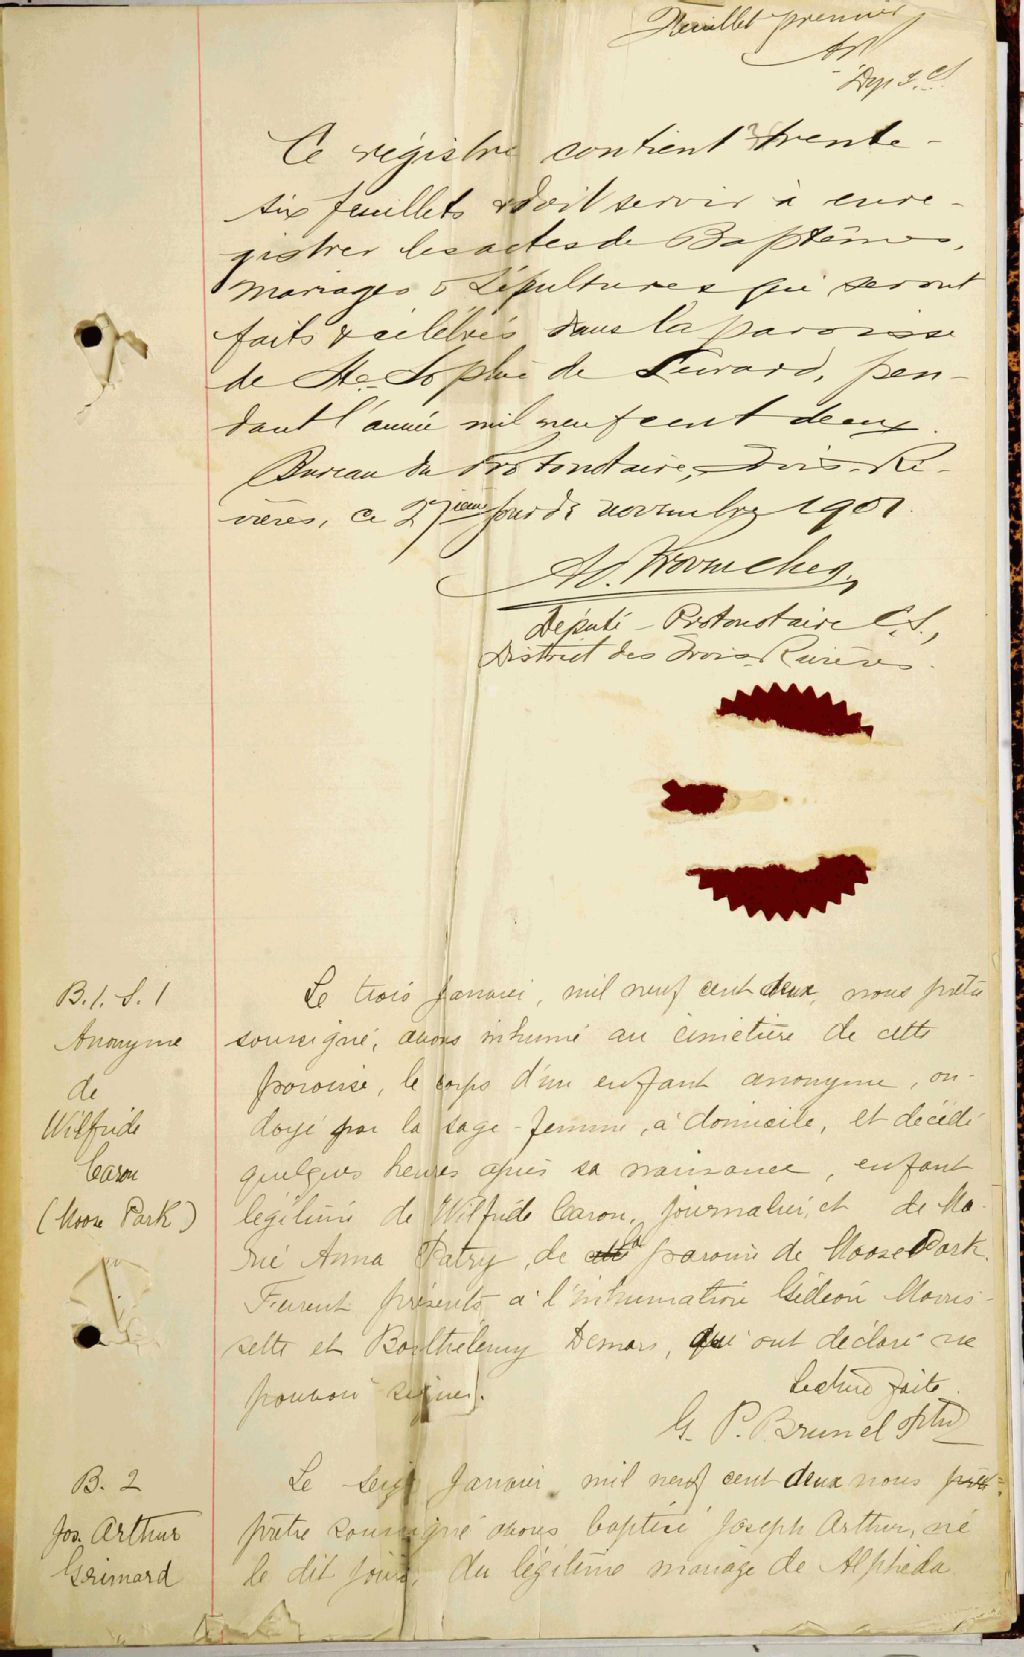 Feuillet premier
Dep P. C.S.
Ce régistre contient trente-
six feuillets & doit servir à enre-
gistrer les actes de Baptêmes,
mariages & Sépultures qui seront
faits & célébrés dans la paroisse
de Ste-Sophie de Levrard, pen-
dant l'année mil neuf cent deux.
Bureau du Protonotaire, Trois-Ri-
vières, ce 27ieme jour de novembre 1901.
Députe-Protonotaire C.S.,
District des Trois-Rivières.
B. 1. S. 1
Anonyme
de
Wilfride
Caron
(Moose Park)
Le trois Janvier, mil neuf cent deux, nous prêtre
soussigné, avons inhumé au cimetière de cette
paroisse, le corps d'un enfant anonyme, on-
doyé par la sage-femme, à domicile, et décédé
quelques heures après sa naissance, enfant
légitime de Wilfride Caron, journalier, et de Ma-
rie Anna Patry, de la paroisse de Moose Park.
Furent présents à l'inhumation Gédéon Moris-
sette et Barthelemy Demars, qui ont déclaré ne
pouvoir signer.
Lecture faite.
G. P. Brunel Ptre
B. 2
Jos. Arthur
Grimard
Le seize Janvier mil neuf cent deux nous prêt-
prêtre soussigné avons baptisé Joseph Arthur, né
le dit jour, du légitime mariage de Alphéda